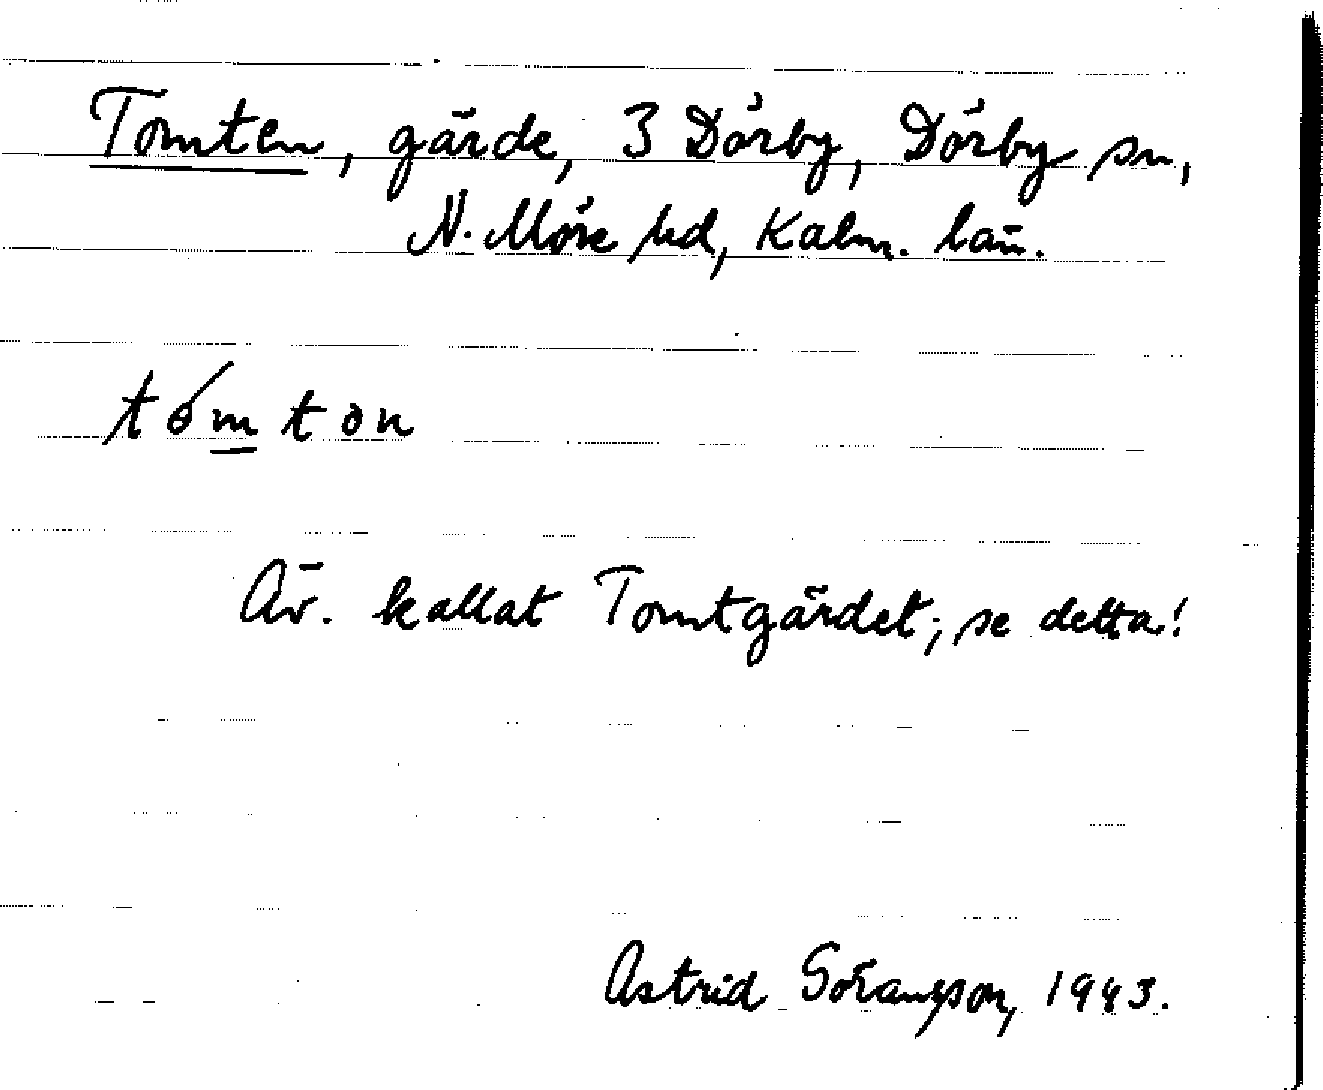 Tomten, gärde, 3 Dörby, Dörby sn,
N. Möre hd, Kalm. län.
tómtən
Äv. kallat Tomtgärdet; se detta!
Astrid Göransson, 1943.